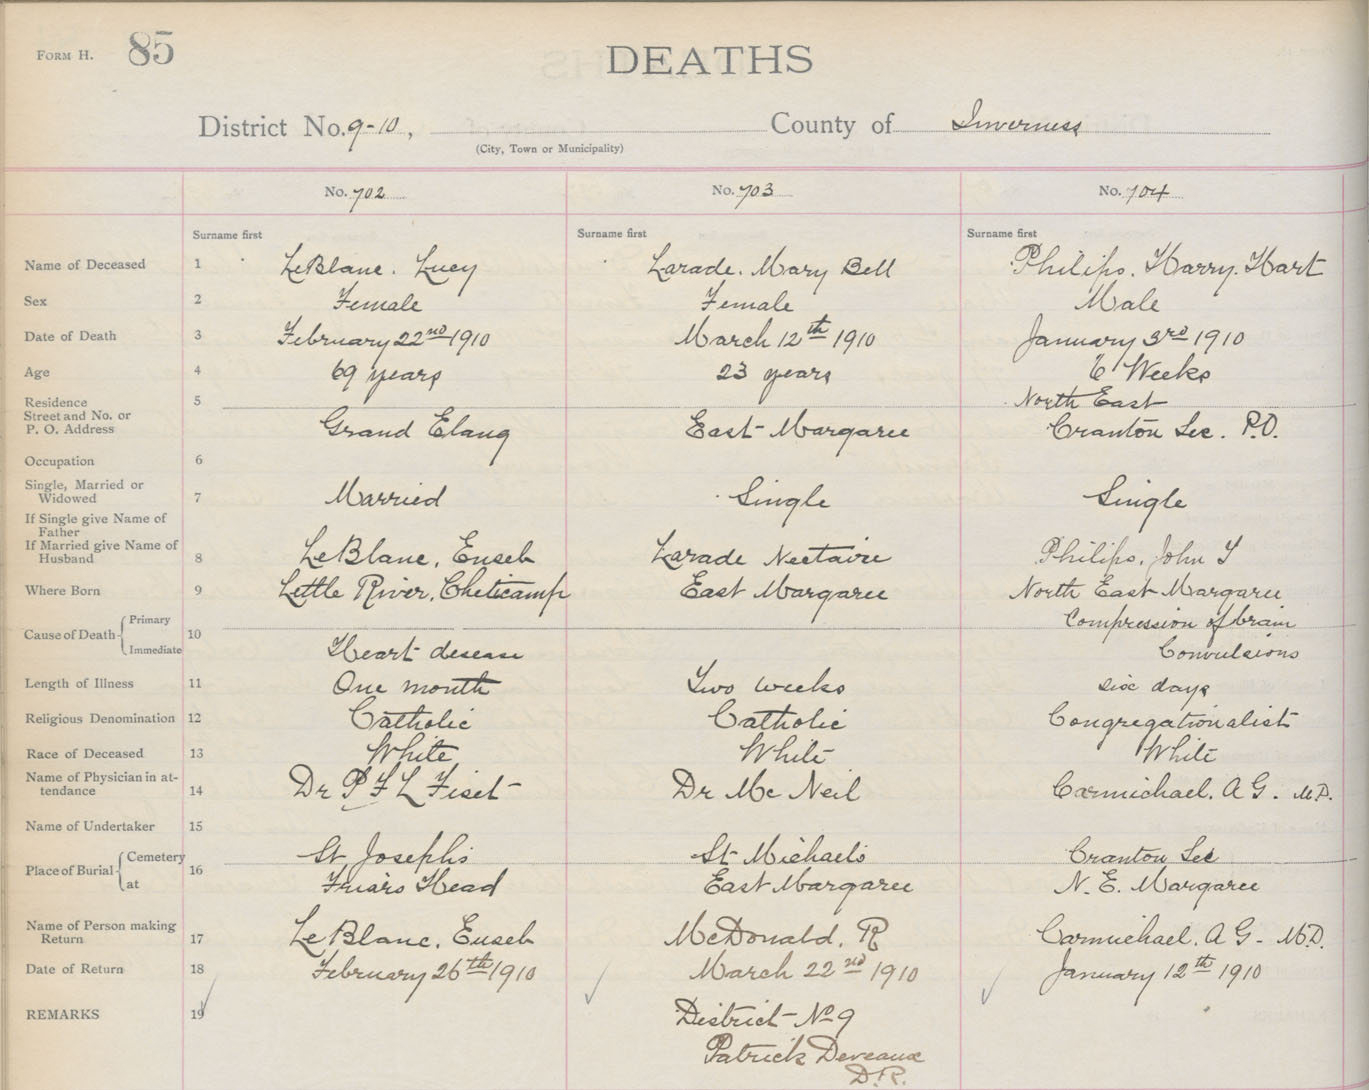 FORM H. 85
DEATHS
District No. 9-10, County of Inverness
(City, Town or Municipality)
No. 702 No. 703 No. 704
Surname first Surname first Surname first
Name of Deceased 1 LeBlanc. Lucy Larade. Mary Bell Philips. Harry. Hart
Sex 2 Female Female Male
Date of Death 3 February 22nd 1910 March 12th 1910 January 3rd 1910
Age 4 69 years 23 years 6 Weeks
Residence 5 North East
Street and No. or
P. O. Address Grand Etang East Margaree Cranton Sec. P.O.
Occupation 6
Single, Married or
Widowed 7 Married Single Single
If Single give Name of
Father
If Married give Name of
Husband 8 LeBlanc, Euseb Larade Nectaire Philips, John
Where Born 9 Little River, Cheticamp East Margaree North East Margaree
Cause of Death Primary 10 Compression of brain
Immediate Heart desease Convulsions
Length of Illness 11 One month Two weeks six days
Religious Denomination 12 Catholic Catholic Congregationalist
Race of Deceased 13 White White White
Name of Physician in at-
tendance 14 Dr P F L Fiset Dr Mc Neil Carmichael. A G. M.D.
Name of Undertaker 15
Place of Burial Cemetery 16 St Josephs St Michaels Cranton Sec
at Friars Head East Margaree N. E. Margaree
Name of Person making
Return 17 LeBlanc, Euseb McDonald, R Carmichael. A G. M.D.
Date of Return 18 February 26th 1910 March 22nd 1910 January 12th 1910
REMARKS 19 District No 9
Patrick Deveaux
D.R.